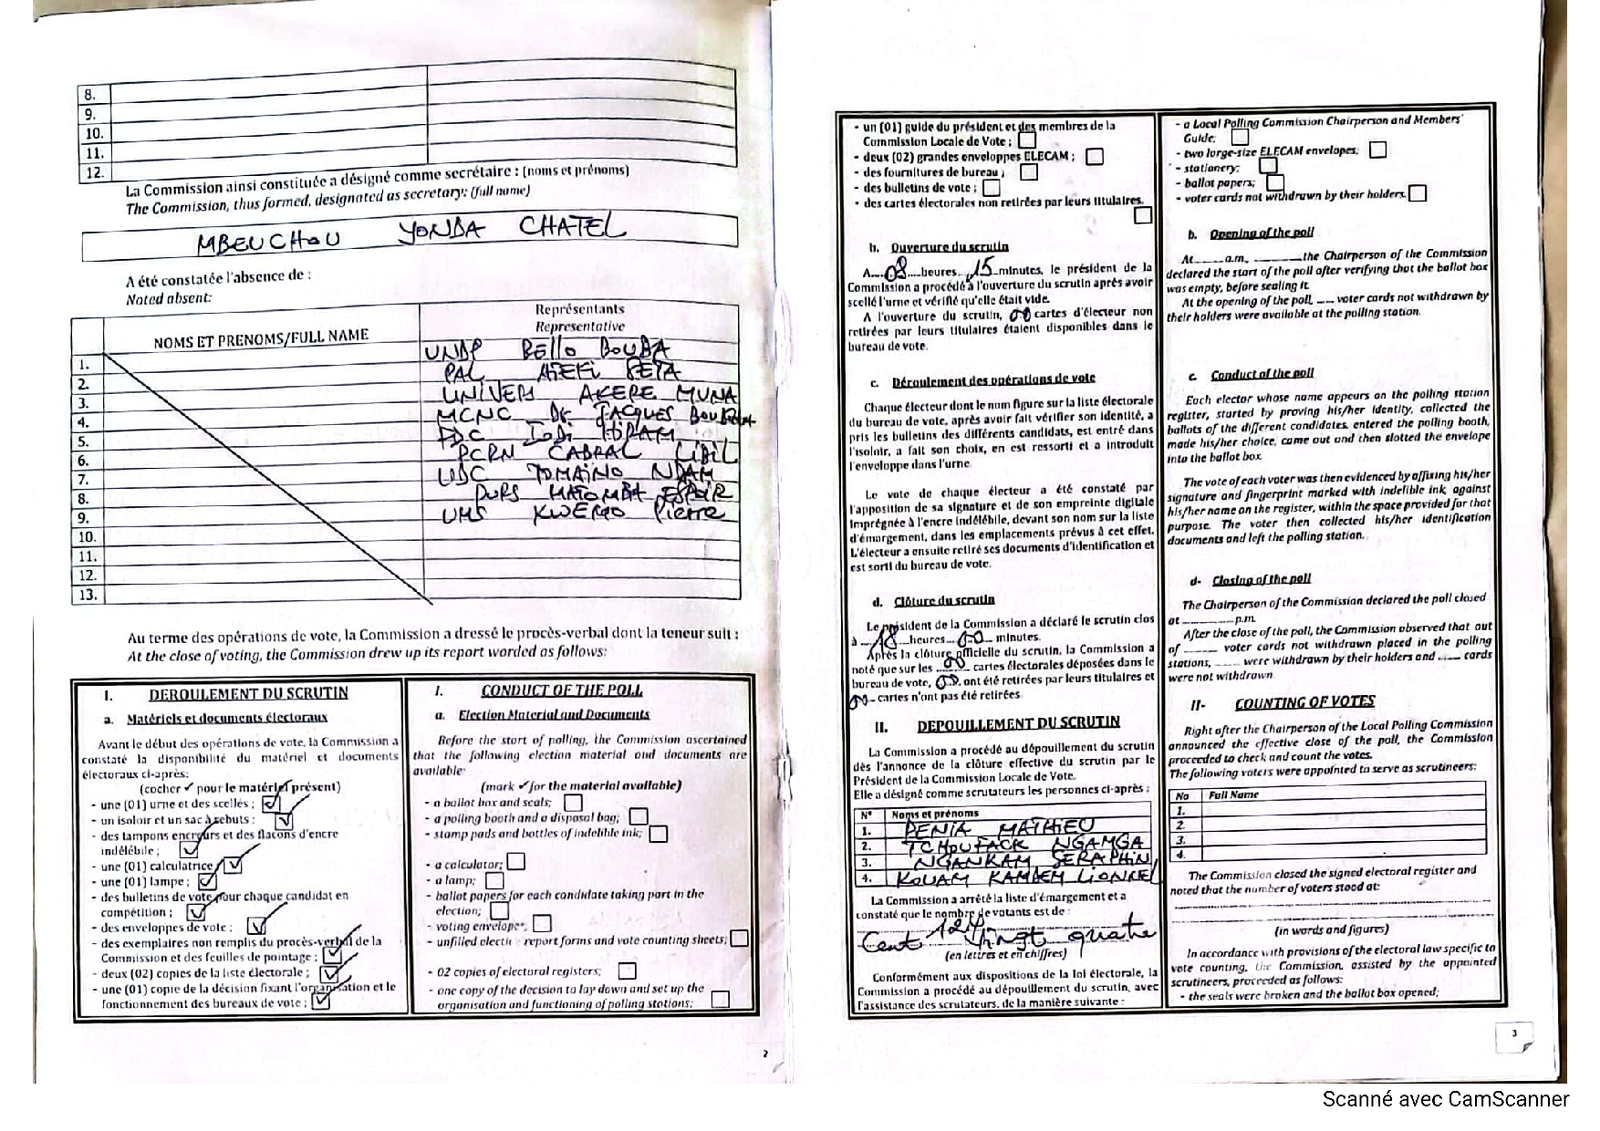 8.
9.
10.
11.
12.
La Commission ainsi constituée a désigné comme secrétaire : (noms et prénoms)
The Commission, thus formed, designated as secretary: (full name)
MBEUCHOU YONDA CHATEL
A été constatée l'absence de :
Noted absent:
NOMS ET PRENOMS/FULL NAME
Représentants
Representative
1. UNDP BEllo BOUBA
2. PAL
3. UNIVERS AKERE MUNA
4. MCNC Dr JACQUES
5.
6. PCRN CABRAL LIBIL
7. UDC TOMAINO NDAM
8. PURS MATOMBA ESPOIR
9. UMS KWEMO Pierre
10.
11.
12.
13.
Au terme des opérations de vote, la Commission a dressé le procès-verbal dont la teneur suit :
At the close of voting, the Commission drew up its report worded as follows:
I. DEROULEMENT DU SCRUTIN
a. Matériels et documents électoraux
Avant le début des opérations de vote, la Commission a
constaté la disponibilité du matériel et documents
électoraux ci-après:
(cocher ✓ pour le matériel présent)
- une (01) urne et des scellés ; ☑
- un isoloir et un sac à rebuts ; ☑
- des tampons encreurs et des flacons d'encre
indélébile ; ☑
- une (01) calculatrice ☑
- une (01) lampe ; ☑
- des bulletins de vote pour chaque candidat en
compétition ; ☑
- des enveloppes de vote ; ☑
- des exemplaires non remplis du procès-verbal de la
Commission et des feuilles de pointage ; ☑
- deux (02) copies de la liste électorale ; ☑
- une (01) copie de la décision fixant l'organisation et le
fonctionnement des bureaux de vote ; ☑
I. CONDUCT OF THE POLL
a. Election Material and Documents
Before the start of polling, the Commission ascertained
that the following election material and documents are
available:
(mark ✓ for the material available)
- a ballot box and seals; ☐
- a polling booth and a disposal bag; ☐
- stamp pads and bottles of indelible ink; ☐
- a calculator; ☐
- a lamp; ☐
- ballot papers for each candidate taking part in the
election; ☐
- voting envelopes; ☐
- unfilled election report forms and vote counting sheets; ☐
- 02 copies of electoral registers; ☐
- one copy of the decision to lay down and set up the
organisation and functioning of polling stations; ☐
2
- un (01) guide du président et des membres de la
Commission Locale de Vote ; ☐
- deux (02) grandes enveloppes ELECAM ; ☐
- des fournitures de bureau ; ☐
- des bulletins de vote ; ☐
- des cartes électorales non retirées par leurs titulaires.
☐
b. Ouverture du scrutin
A 08 heures 15 minutes, le président de la
Commission a procédé à l'ouverture du scrutin après avoir
scellé l'urne et vérifié qu'elle était vide.
A l'ouverture du scrutin, 00 cartes d'électeur non
retirées par leurs titulaires étaient disponibles dans le
bureau de vote.
c. Déroulement des opérations de vote
Chaque électeur dont le nom figure sur la liste électorale
du bureau de vote, après avoir fait vérifier son identité, a
pris les bulletins des différents candidats, est entré dans
l'isoloir, a fait son choix, en est ressorti et a introduit
l'enveloppe dans l'urne.
Le vote de chaque électeur a été constaté par
l'apposition de sa signature et de son empreinte digitale
imprégnée à l'encre indélébile, devant son nom sur la liste
d'émargement, dans les emplacements prévus à cet effet.
L'électeur a ensuite retiré ses documents d'identification et
est sorti du bureau de vote.
d. Clôture du scrutin
Le président de la Commission a déclaré le scrutin clos
à 18 heures 00 minutes.
Après la clôture officielle du scrutin, la Commission a
noté que sur les 00 cartes électorales déposées dans le
bureau de vote, 00 ont été retirées par leurs titulaires et
00 cartes n'ont pas été retirées
II. DEPOUILLEMENT DU SCRUTIN
La Commission a procédé au dépouillement du scrutin
dès l'annonce de la clôture effective du scrutin par le
Président de la Commission Locale de Vote.
Elle a désigné comme scrutateurs les personnes ci-après :
N° Noms et prénoms
1. PENIA MATHIEU
2. TCHOUFACK NGAMGA
3. NGANKAM SERAPHIN
4. KOUAM KAMDEM LIONNEL
La Commission a arrêté la liste d'émargement et a
constaté que le nombre de votants est de :
124
Cent vingt quatre
(en lettres et en chiffres)
Conformément aux dispositions de la loi électorale, la
Commission a procédé au dépouillement du scrutin, avec
l'assistance des scrutateurs, de la manière suivante :
- a Local Polling Commission Chairperson and Members'
Guide; ☐
- two large-size ELECAM envelopes; ☐
- stationery; ☐
- ballot papers; ☐
- voter cards not withdrawn by their holders. ☐
b. Opening of the poll
At......a.m, ........the Chairperson of the Commission
declared the start of the poll after verifying that the ballot box
was empty, before sealing it.
At the opening of the poll, .... voter cards not withdrawn by
their holders were available at the polling station.
c. Conduct of the poll
Each elector whose name appears on the polling station
register, started by proving his/her identity, collected the
ballots of the different candidates, entered the polling booth,
made his/her choice, came out and then slotted the envelope
into the ballot box.
The vote of each voter was then evidenced by affixing his/her
signature and fingerprint marked with indelible ink, against
his/her name on the register, within the space provided for that
purpose. The voter then collected his/her identification
documents and left the polling station.
d- Closing of the poll
The Chairperson of the Commission declared the poll closed
at ..........p.m.
After the close of the poll, the Commission observed that out
of ....... voter cards not withdrawn placed in the polling
stations, ..... were withdrawn by their holders and ..... cards
were not withdrawn
II- COUNTING OF VOTES
Right after the Chairperson of the Local Polling Commission
announced the effective close of the poll, the Commission
proceeded to check and count the votes.
The following voters were appointed to serve as scrutineers:
No Full Name
1.
2.
3.
4.
The Commission closed the signed electoral register and
noted that the number of voters stood at:
(in words and figures)
In accordance with provisions of the electoral law specific to
vote counting, the Commission, assisted by the appointed
scrutineers, proceeded as follows:
- the seals were broken and the ballot box opened;
3
Scanné avec CamScanner